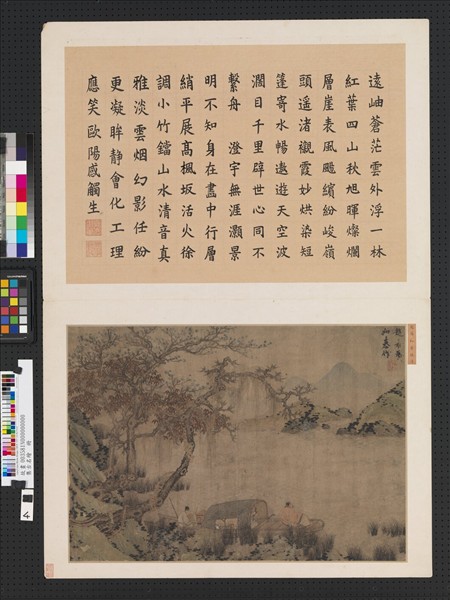 遠岫蒼茫雲外浮一林
紅葉四山秋旭暉燦爛
層崖表風颭繽紛峻嶺
頭遥渚觀霞妙烘染短
篷寄水暢遨遊天空波
濶目千里辟世心同不
繫舟　澄宇無涯灝景
明不知身在畫中行層
綃平展髙楓坂活火徐
調小竹鐺山水清音真
雅淡雲烟幻影任紛
更凝眸静會化工理
應笑歐陽感觸生